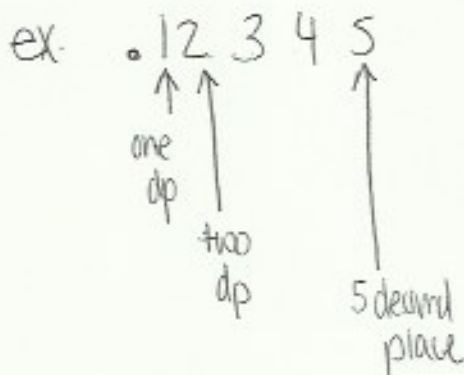 ex. .12345
one
dp
two
dp
5 decimal
place